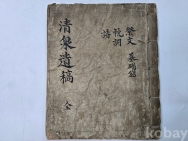 祭文 墓碣銘
輓詞
誌
清泉遺稿 全
kobay